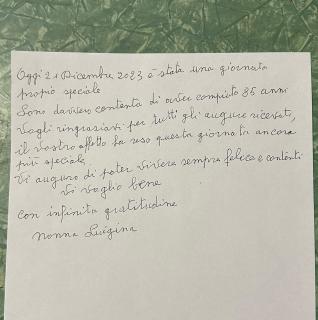 Oggi 21 Dicembre 2023 è stata una giornata
propio speciale
Sono davvero contenta di aver compiuto 85 anni
Vogli ringraziarvi per tutti gli augure ricevuti,
il vostro affetto ha reso questa giornata ancora
più speciale.
Vi auguro di poter vivere sempre felici e contenti
Vi voglio bene
con infinita gratitudine
nonna Luigina